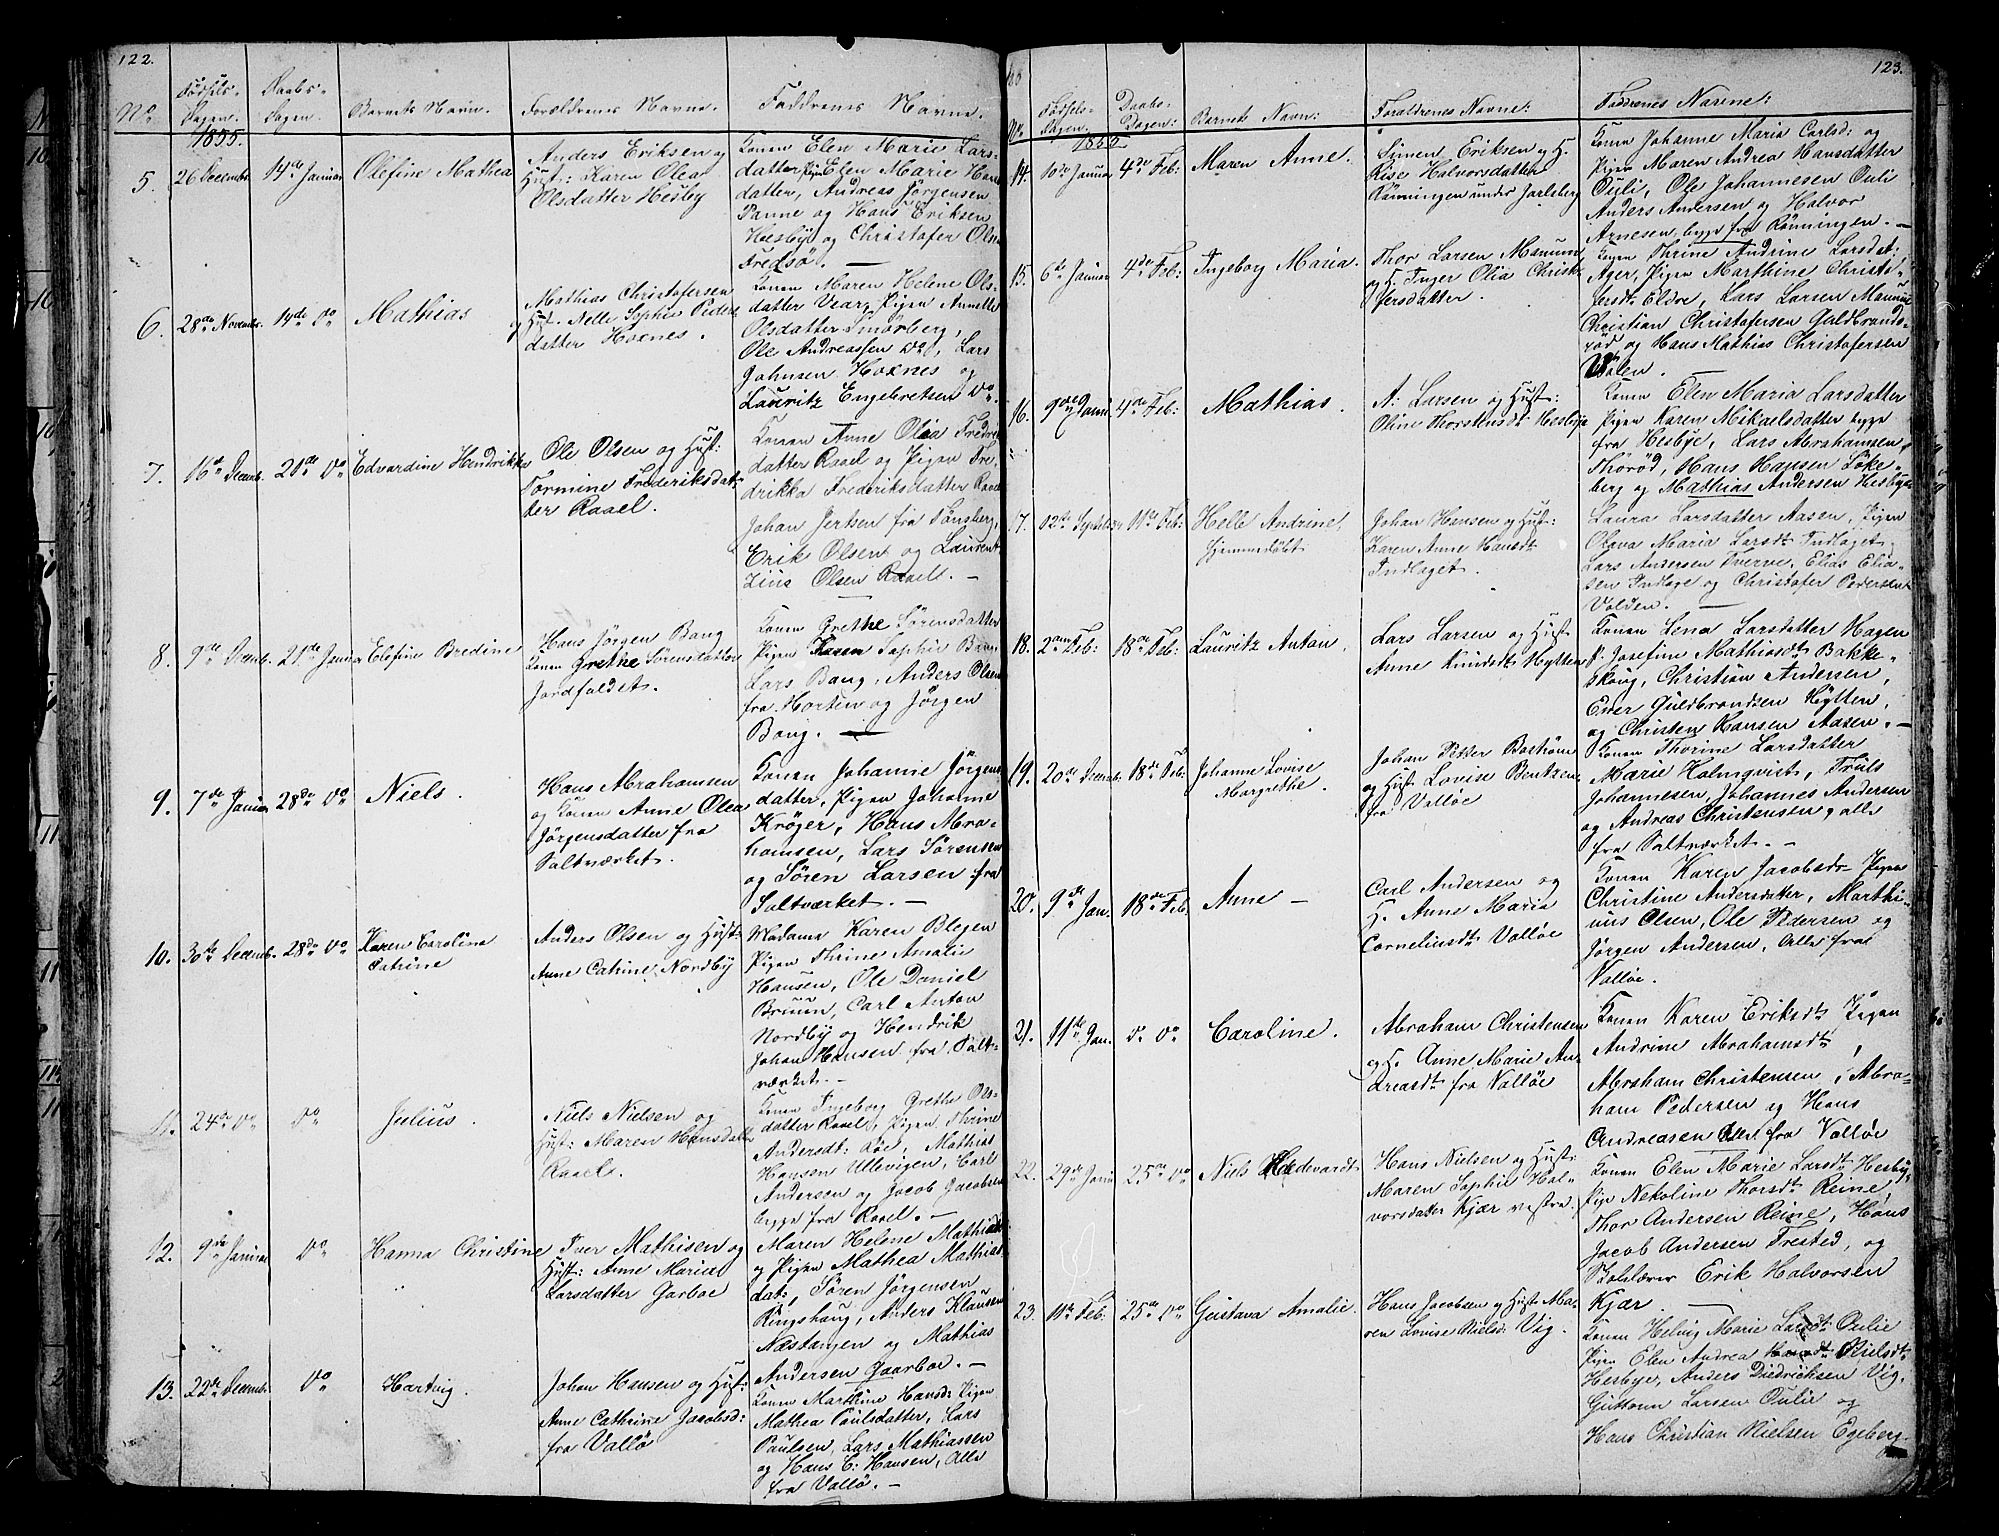 122.
No
Fødsels-
Dagen.
Daabs-
Dagen.
Barnets Navn.
Forældrenes Navne.
Faddrenes Navne.
1855.
5. 26 Decemb. 14de Januar Olefine Mathea
Anders Eriksen og
Hust: Karen Olea
Olsdatter Hesby
Konen Elen Marie Lars-
datter Pigen Elen Marie Hans
datter, Andreas Jørgensen
Panne og Hans Eriksen
Hesby og Christofer Ols
Tredsø. —
6. 28de Novemb. 14de Do Mathias
Mathias Christofersen
og Hust. Nelle Sophie Peders
datter Hoxnes.
Konen Maren Helene Ols-
datter Vear, Pigen Annette
Olsdatter Smørberg,
Ole Andreassen Do, Lars
Johnsen Hoxnes og
Lauritz Engebretsen Do.
7. 16de Decemb. 21de Do Edvardine Hendrikke
Ole Olsen og Hust:
Tormine Frederiksdat-
ter Rael.
Konen Anne Olia Fredriks
datter Rael og Pigen Fre-
drikka Frederiksdatter Rael
Johan Jertsen fra Tønsberg,
Erik Olsen og Laurent
Zius Olsen Rael. —
8. 9de Decemb. 21de Januar Elefine Bredine
Hans Jørgen Bang
Konen Grethe Sørensdatter
Jordfaldet.
Konen Grethe Sørensdatter
Pigen Sophie Bang
Lars Bang, Anders Olsen
fra Horten og Jørgen
Bang. —
9. 7de Januar 28de Do Niels.
Hans Abrahamsen
og Konen Anne Olea
Jørgensdatter fra
Saltværket.
Konen Johanne Jørgens
datter, Pigen Johanne
Krøger, Hans Abra-
hamsen, Lars Sørensen
og Søren Larsen fra
Saltværket. —
10. 30te Decemb. 28de Do Karen Carolina
Catrine
Anders Olsen og Hust:
Anne Catrine Nordby
Madame Karen Blegen
Pigen Thrine Amalie
Hansen, Ole Daniel
Bruun, Carl Anton
Nordby og Hendrik
Johan Hansen fra Salt-
værket. —
11. 24de Do Do Julius.
Niels Nielsen og
Hust: Maren Hansdatter
Rael.
Konen Ingeborg Grethe Ols-
datter Rael, Pigen Thrine
Andersdt: Røe, Mathias
Hansen Ullevigen, Carl
Andersen og Jacob Jacobsen
begge fra Rael. —
12. 9de Januar Do Hanna Christine
Iver Mathisen og
Hust: Anne Maria
Larsdatter Garboe
Maren Helene Mathiasd
og Pigen Mathea Mathias
dat:, Søren Jørgensen
Ringshaug, Anders Klausen
Næstangen og Mathias
Andersen Gaarboe. —
13. 22de Decemb. Do Hartvig.
Johan Hansen og Hust:
Anne Cathrine Jacobsd:
fra Valløe
Konen Marthine Hansd: Pigen
Mathea Paulsdatter, Lars
Paulsen, Lars Mathiassen
og Hans C: Hansen, Alle
fra Vallø. —
123.
No
Fødsels-
Dagen.
Daabs-
Dagen:
Barnets Navn:
Forældrenes Navne:
Faddrenes Navne:
1855
14. 10de Januar 4de Feb: Maren Anne.
Simen Eriksen og H.
Rise Halvorsdatter
Rønningen under Jarlsberg
Konen Johanne Maria Carlsd: og
Pigen Maren Andrea Hansdatter
Ouli, Ole Johannesen Ouli
Anders Andersen og Halvor
Arnesen, begge fra Rønningen. —
15. 6te Januar 4de Feb: Ingeborg Maria.
Thor Larsen Mamum
og H. Inger Olia Christ-
fersdatter.
Konen Thrine Andrine Larsdt:
Ager, Pigen Marthine Christi-
fersdt: Eldre, Lars Larsen Mamum
Christian Christofersen Guldbrands-
rød og Hans Mathias Christofersen
Volen.
16. 9de Janu 4de Feb: Mathias.
A: Larsen og Hust:
Oline Thorstensdt Hesbye
Konen Elen Maria Larsdatter
Pigen Karen Mikaelsdatter begge
fra Hesbye, Lars Abrahamsen
Thorød, Hans Hansen Løke-
berg og Mathias Andersen Hesbye
17. 02te September 11te Feb: Helle Andrine,
Hjemmedøbt
Johan Hansen og Hust:
Karen Anne Hansdt
Indlaget.
Laura Larsdatter Aasen, Pigen
Olava Maria Larsdt Indlaget,
Lars Andersen Tverve, Elias Elia-
sen Indlage og Christofer Pedersen
Volden. —
18. 2den Feb: 18de Feb: Lauritz Anton.
Lars Larsen og Hust
Anne Knudsdt Hytten
Konen Lena Larsdatter Hagen
P. Josefine Mathiasdt Bakke-
skoug, Christian Andersen,
Ener Guldbrandsen Hytten,
og Christen Hansen Aasen. —
19. 20de Decemb. 18de Feb: Johanne Lovise
Margrethe.
Johan Petter Bostrøm
og Hust: Lovise Bentzen
fra Valløe
Konen Thorine Larsdatter
Marie Holmqvist, Truls
Johannesen, Johannes Andersen
og Andreas Christensen, alle
fra Saltværket. —
20. 9de Jan. 18de Feb. Anne —
Carl Andersen og
H. Anne Maria
Corneliusdt Valløe
Konen Karen Jacobsdr Pigen
Christine Andersdatter, Marthi-
nius Olsen, Ole Pedersen og
Jørgen Andersen, Alle fra
Valløe.
21. 11te Jan. D. Do Caroline.
Abraham Christensen
og H. Anne Marie An-
dreasdt fra Valløe
Konen Karen Eriksdt Pigen
Andrine Abrahamsdt,
Abraham Christensen, Abra-
ham Pedersen og Hans
Andreasen Alle fra Valløe
22. 29de Janu 25de Do Niels Hedevardt
Hans Nielsen og Hust:
Maren Sophie Hal-
vorsdatter Kjær vestra
Konen Elen Marie Larsdt Hesby,
Pige Nekoline Thorsdt Reine,
Thor Andersen Reine, Hans
Jacob Andersen Trested, og
Skolelærer Erik Halvorsen
Kjær. —
23. 11te Feb. 25de Do Gustava Amalie.
Hans Jacobsen og Hust: Ma-
ren Lovise Nielsd: Vig.
Konen Helvig Marie Larsdt: Oulie
Pigen Elen Andrea Nielsdt.
Hesbye, Anders Diedriksen Vig,
Guttorm Larsen Oulie og
Hans Christian Nielsen Egeberg.